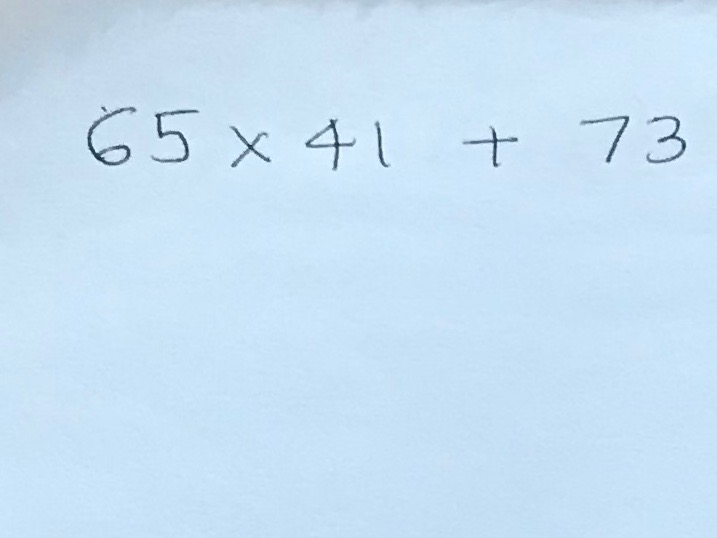 65 × 41 + 73